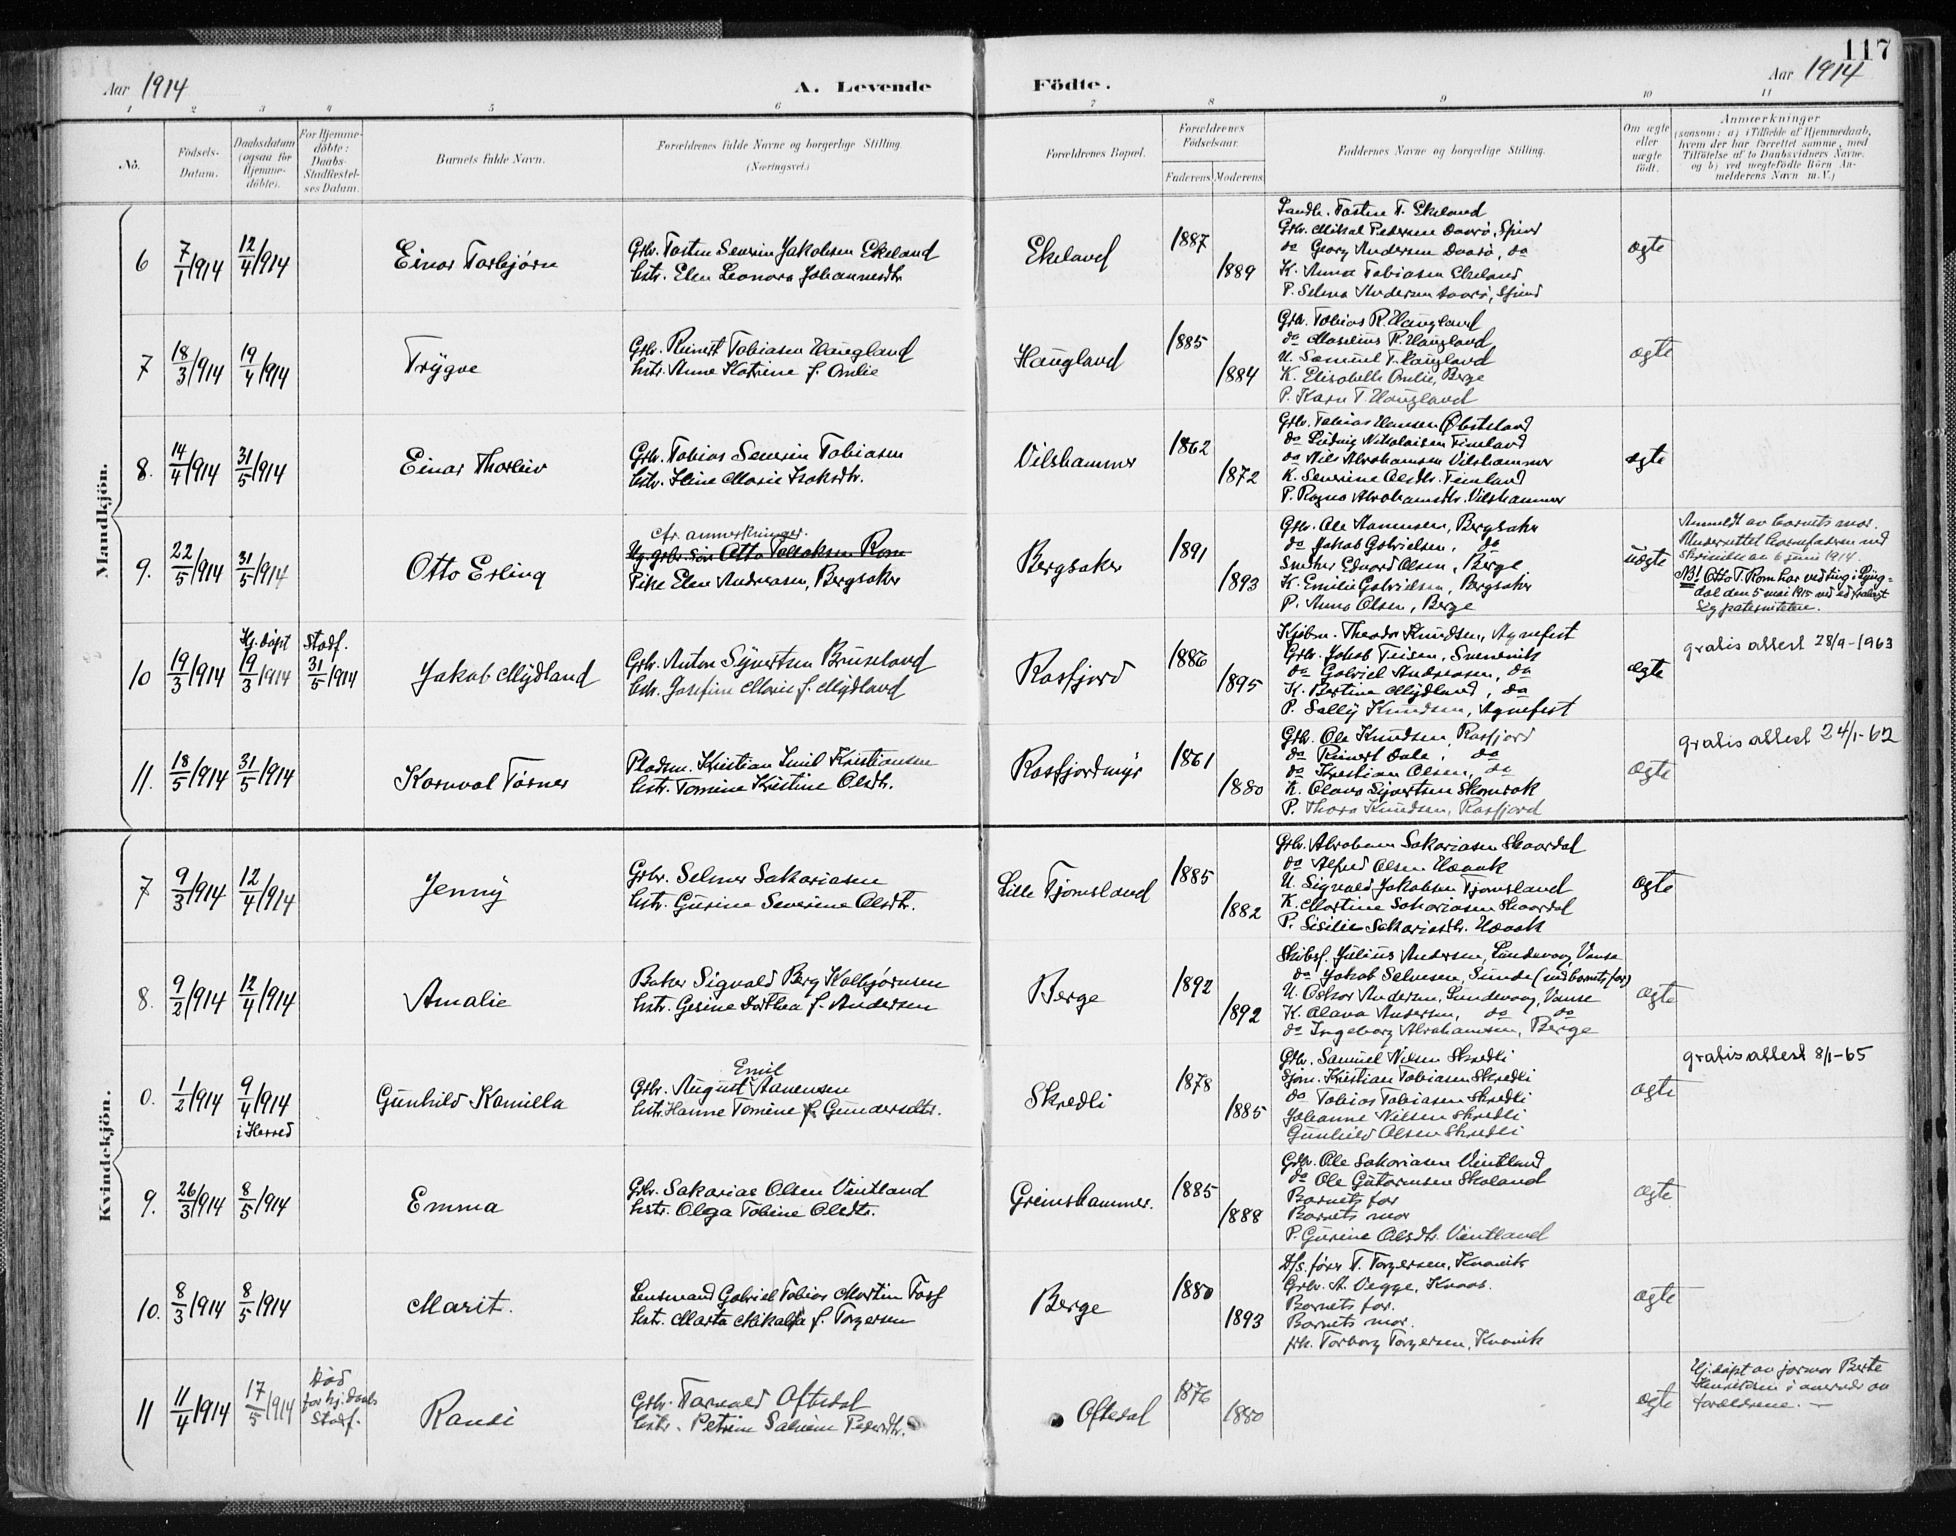 117
Aar 1914
A. Levende
Födte.
Aar 1914
1 2 3 4 5 6 7 8 9 10 11
No.
Födsels-Datum.
Daabsdatum (ogsaa for Hjemme-döbte).
For Hjemme-döbte: Daabs-Stadfæstel-ses Datum.
Barnets fulde Navn.
Forældrenes fulde Navne og borgerlige Stilling. (Næringsvei.)
Forældrenes Bopæl.
Forældrenes Födselsaar.
Faderens Moderens
Faddernes Navne og borgerlige Stilling.
Om ægte eller uægte födt.
Anmærkninger
(saasom: a) i Tilfælde af Hjemmedaab, hvem der har forrettet samme, med Tilföielse af to Daabsvidners Navne, og b) ved uægtefödte Börn An-melderens Navn m. V.)
Mandkjön.
6 7/1 1914 12/4 1914 Einar Torbjørn
Grbr. Tosten Severin Jakobsen Ekeland
hstr. Elen Leonora Johannesdtr.
Ekeland 1887 1889
Landh. Tosten T. Ekeland
Grbr. Mikal Pedersen Daarø, Spind
do Georg Andersen Daarø, do
K. Anna Tobiasen Ekeland
P. Selma Andersen Daarø, Spind
ægte
7 18/3 1914 19/4 1914 Trygve
Grbr. Reinert Tobiasen Haugland
hstr. Anne Katrine f. Omlie
Haugland 1885 1884
Grb. Tobias R. Haugland
do Maselius R. Haugland
U. Samuel T. Haugland
K. Elisabeth Omlie, Berge
P. Karn T. Haugland
ægte
8. 14/4 1914 31/5 1914 Einar Thorleiv
Grbr. Tobias Severin Tobiasen
hstr. Stine Marie Isaksdtr.
Vilshammer 1862 1872
Grbr. Tobias Hansen Øbsteland
do Ludvig Nikolaisen Fineland
do Nils Abrahamsen Vilshammer
K. Severine Olsdtr. Fineland
P. Ragna Abrahamsdtr. Vilshammer
ægte
9. 22/5 1914 31/5 1914 Otto Erling
cfr. anmerkninger.
Ug. grbr. søn Otto Tollaksen Rom
Pike Elen Andreasen, Bergsaker
Bergsaker 1891 1893
Grbr. Ole Aanensen, Bergsaker
do Jakob Gabrielsen, do
Snedker Edvard Olsen, Berge
K. Emilie Gabrielsen, Bergsaker
P. Anna Olsen, Berge
uægte
Anmeldt av barnets mor.
Underrettet barnefaderen ved
skrivelse av 6 juni 1914.
NB! Otto T. Rom har ved ting i Lyng-
dal den 5 mai 1915 ved ed fralagt
sig paterniteten.
10 19/3 1914 Hj. døpt 19/3 1914 Stadf. 31/5 1914 Jakob Mydland
Grbr. Anton Syvertsen Bruseland
hstr. Josefine Marie f. Mydland
Rosfjord 1886 1895
Kjøbm. Theodor Knudsen, Agnefest
Grbr. Jakob Teisen, Svenevik
do Gabriel Andreasen, do
K. Bertine Mydland, do
P. Sally Knudsen, Agnefest
ægte
gratis attest 28/9-1963
11. 18/5 1914 31/5 1914 Kornval Tørner
Pladsm. Kristian Emil Kristiansen
hstr. Tomine Kristine Olsdtr.
Rosfjordmyr 1861 1880
Grb. Ole Knudsen, Rosfjord
do Reinert Dale, do
do Kristian Olsen, do
K. Olava Sijvertsen Skomrak
P. Thora Knudsen, Rosfjord
ægte
gratis attest 24/1-62
Kvindekjön.
7 9/3 1914 12/4 1914 Jenny
Grbr. Selmer Sakariasen
hstr. Gurine Severine Olsdtr.
Lille Tjomsland 1885 1882
Grbr. Abraham Sakariasen Skaardal
do Alfred Olsen Hævak
U. Sigvald Jakobsen Tjomsland
K. Martine Sakariasen Skaardal
P. Sisilie Sakariasdtr. Hævak
ægte
8. 9/2 1914 12/4 1914 Amalie
Baker Sigvald Berg Kolbjørnsen
hstr. Gesine Dorthea f. Andersen
Berge 1892 1892
Skibsf. Julius Andersen, Lundevaag, Vanse
do Jakob Selvesen, Sunde (ved barnets far)
U. Oskar Andersen, Lundevaag, Vanse
K. Olava Andersen, do, do
do Ingeborg Abrahamsen, Berge
ægte
0. 1/2 1914 9/4 1914 i Herred Gunhild Kamilla
Grbr. August Emil Aanensen
hstr. Hanne Tomine f. Gundersdtr.
Skredli 1878 1885
Grb. Samuel Nilsen Skredli
Sjøm. Kristian Tobiasen Skredli
do Tobias Tobiasen Skredli
Johanne Nilsen Skredli
Gunhild Olsen Skredli
ægte
gratis attest 8/1-65
9. 26/3 1914 8/5 1914 Emma
Grbr. Sakarias Olsen Vintland
hstr. Olga Tobine Olsdtr.
Greimshammer. 1885 1888
Grbr. Ole Sakariasen Vintland
do Ole Guttormsen Skoland
Barnets far
Barnets mor
P. Gurine Olsdtr. Vintland
ægte
10. 8/3 1914 8/5 1914 Marit.
Lensmand Gabriel Tobias Martin Foss
hstr. Marta Mikalea f. Torgersen
Berge 1880 1893
D/s. fører T. Torgersen, Kvavik
Grbr. A. Vegge, Kvaas.
Barnets far.
Barnets mor.
frk. Torborg Torgersen, Kvavik
ægte
11 11/4 1914 17/5 1914 Død før hj. daabs Stadf. Randi
Grbr. Torvald Oftedal
hstr. Petrine Salvine Pedersdtr.
Oftedal 1876 1880
ægte
Hj. døpt av jormor Berte
Henriksen i nærvær av
forældrene.